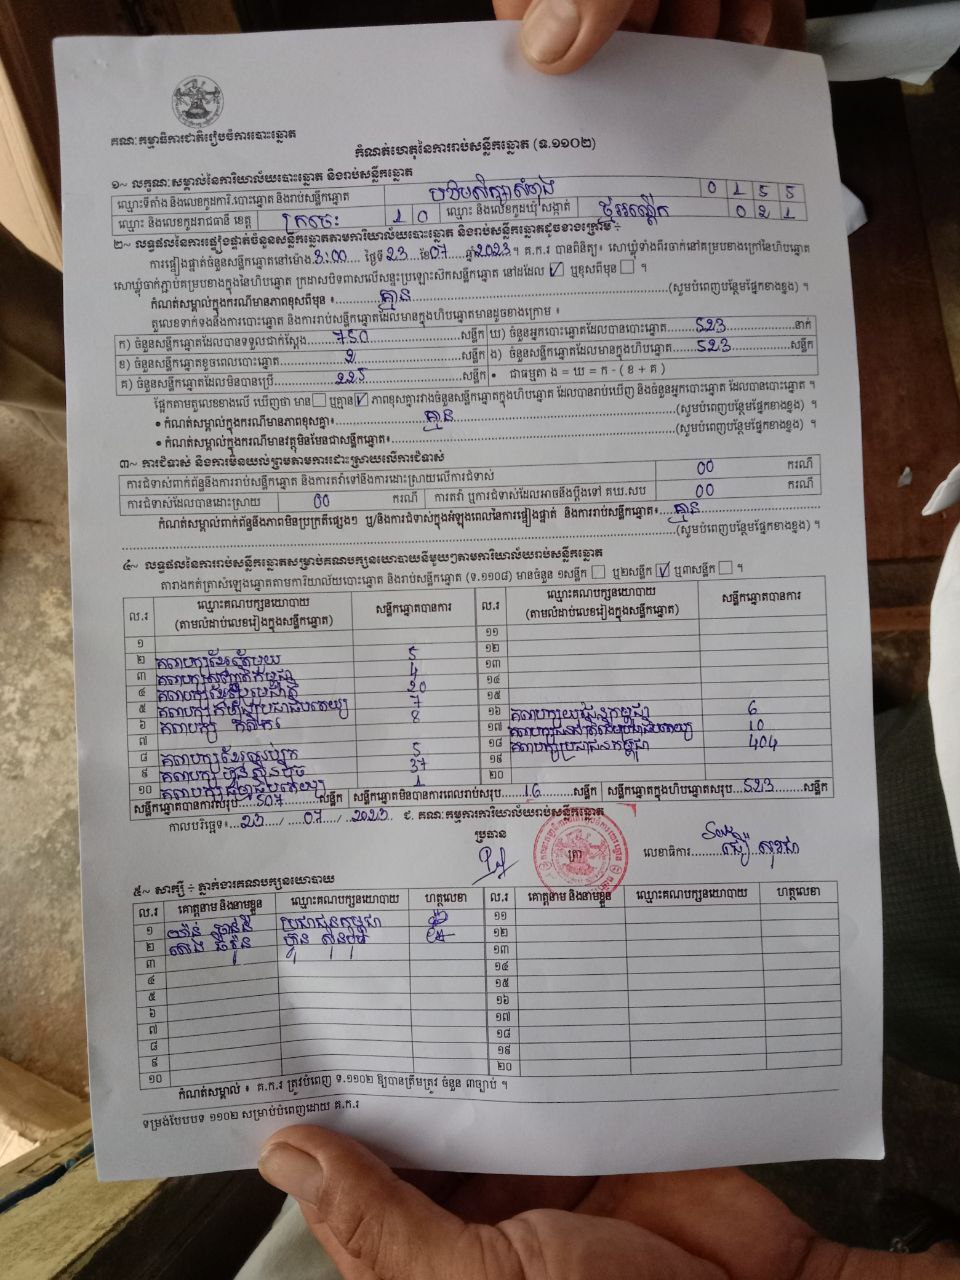 គណៈកម្មាធិការជាតិរៀបចំការបោះឆ្នោត
កំណត់ហេតុនៃការរាប់សន្លឹកឆ្នោត (ទ.១១០២)
១~ លក្ខណៈសម្គាល់នៃការិយាល័យបោះឆ្នោត និងរាប់សន្លឹកឆ្នោត
ឈ្មោះទីតាំង និងលេខកូដការិ.បោះឆ្នោត និងរាប់សន្លឹកឆ្នោត 0 1 5 5
ឈ្មោះ និងលេខកូដរាជធានី ខេត្ត ក្រចេះ 1 0 ឈ្មោះ និងលេខកូដឃុំ សង្កាត់ ថ្មអណ្តើក 0 2 1
២~ លទ្ធផលនៃការផ្ទៀងផ្ទាត់ចំនួនសន្លឹកឆ្នោតតាមការិយាល័យបោះឆ្នោត និងរាប់សន្លឹកឆ្នោតដូចខាងក្រោម ÷
ការផ្ទៀងផ្ទាត់ចំនួនសន្លឹកឆ្នោតនៅម៉ោង 3:00 ថ្ងៃទី 23 ខែ 07 ឆ្នាំ 2023 ។ គ.ក.រ បានពិនិត្យ៖ សោឃ្លុំទាំងពីរចាក់នៅគម្របខាងក្រៅនៃហិបឆ្នោត
សោឃ្លុំចាក់ភ្ជាប់គម្របខាងក្នុងនៃហិបឆ្នោត ក្រដាសបិទពាសលើសន្ទះប្រឡោះស៊កសន្លឹកឆ្នោត នៅដដែល ☑ ឬខុសពីមុន ☐ ។
កំណត់សម្គាល់ក្នុងករណីមានភាពខុសពីមុន ៖ គ្មាន (សូមបំពេញបន្ថែមផ្នែកខាងខ្នង) ។
តួលេខទាក់ទងនឹងការបោះឆ្នោត និងការរាប់សន្លឹកឆ្នោតដែលមានក្នុងហិបឆ្នោតមានដូចខាងក្រោម ៖
ក) ចំនួនសន្លឹកឆ្នោតដែលបានទទួលជាក់ស្តែង 750 សន្លឹក ឃ) ចំនួនអ្នកបោះឆ្នោតដែលបានបោះឆ្នោត 523 នាក់
ខ) ចំនួនសន្លឹកឆ្នោតខូចពេលបោះឆ្នោត 2 សន្លឹក ង) ចំនួនសន្លឹកឆ្នោតដែលមានក្នុងហិបឆ្នោត 523 សន្លឹក
គ) ចំនួនសន្លឹកឆ្នោតដែលមិនបានប្រើ 225 សន្លឹក • ជាធម្មតា ង = ឃ = ក - ( ខ + គ )
ផ្អែកតាមតួលេខខាងលើ ឃើញថា មាន ☐ ឬគ្មាន ☑ ភាពខុសគ្នារវាងចំនួនសន្លឹកឆ្នោតក្នុងហិបឆ្នោត ដែលបានរាប់ឃើញ និងចំនួនអ្នកបោះឆ្នោត ដែលបានបោះឆ្នោត ។
• កំណត់សម្គាល់ក្នុងករណីមានភាពខុសគ្នា៖ គ្មាន (សូមបំពេញបន្ថែមផ្នែកខាងខ្នង) ។
• កំណត់សម្គាល់ក្នុងករណីមានវត្ថុមិនមែនជាសន្លឹកឆ្នោត៖ (សូមបំពេញបន្ថែមផ្នែកខាងខ្នង) ។
៣~ ការជំទាស់ និងការមិនយល់ព្រមតាមការដោះស្រាយលើការជំទាស់
ការជំទាស់ពាក់ព័ន្ធនឹងការរាប់សន្លឹកឆ្នោត និងការតវ៉ាទៅនឹងការដោះស្រាយលើការជំទាស់ 00 ករណី
ការជំទាស់ដែលបានដោះស្រាយ 00 ករណី ការតវ៉ា ឬការជំទាស់ដែលអាចនឹងប្តឹងទៅ គឃ.សប 00 ករណី
កំណត់សម្គាល់ពាក់ព័ន្ធនឹងភាពមិនប្រក្រតីផ្សេងៗ ឬ/និងការជំទាស់ក្នុងអំឡុងពេលនៃការផ្ទៀងផ្ទាត់ និងការរាប់សន្លឹកឆ្នោត៖ គ្មាន
(សូមបំពេញបន្ថែមផ្នែកខាងខ្នង) ។
៤~ លទ្ធផលនៃការរាប់សន្លឹកឆ្នោតសម្រាប់គណបក្សនយោបាយនីមួយៗតាមការិយាល័យរាប់សន្លឹកឆ្នោត
តារាងកត់ត្រាសំឡេងឆ្នោតតាមការិយាល័យបោះឆ្នោត និងរាប់សន្លឹកឆ្នោត (ទ.១១០៨) មានចំនួន ១សន្លឹក ☐ ឬ២សន្លឹក ☑ ឬ៣សន្លឹក ☐ ។
ល.រ ឈ្មោះគណបក្សនយោបាយ (តាមលំដាប់លេខរៀងក្នុងសន្លឹកឆ្នោត) សន្លឹកឆ្នោតបានការ ល.រ ឈ្មោះគណបក្សនយោបាយ (តាមលំដាប់លេខរៀងក្នុងសន្លឹកឆ្នោត) សន្លឹកឆ្នោតបានការ
១ ១១
២ គណបក្សខ្មែរតែមួយ 5 ១២
៣ 4 ១៣
៤ 20 ១៤
៥ 7 ១៥
៦ គណបក្ស កសិករ 8 ១៦ គណបក្សយុវជនកម្ពុជា 6
៧ ១៧ 10
៨ 5 ១៨ គណបក្សប្រជាជនកម្ពុជា 404
៩ គណបក្ស ហ៊្វុនស៊ិនប៉ិច 37 ១៩
១០ 1 ២០
សន្លឹកឆ្នោតបានការសរុប 507 សន្លឹក សន្លឹកឆ្នោតមិនបានការពេលរាប់សរុប 16 សន្លឹក សន្លឹកឆ្នោតក្នុងហិបឆ្នោតសរុប 523 សន្លឹក
កាលបរិច្ឆេទ៖ 23 / 07 / 2023 ជ. គណៈកម្មការការិយាល័យរាប់សន្លឹកឆ្នោត
ប្រធាន
ត្រា
លេខាធិការ
៥~ សាក្សី ÷ ភ្នាក់ងារគណបក្សនយោបាយ
ល.រ គោត្តនាម និងនាមខ្លួន ឈ្មោះគណបក្សនយោបាយ ហត្ថលេខា ល.រ គោត្តនាម និងនាមខ្លួន ឈ្មោះគណបក្សនយោបាយ ហត្ថលេខា
១ ប្រជាជនកម្ពុជា ១១
២ ហ៊្វុន ស៊ិនប៉ិច ១២
៣ ១៣
៤ ១៤
៥ ១៥
៦ ១៦
៧ ១៧
៨ ១៨
៩ ១៩
១០ ២០
កំណត់សម្គាល់ ៖ គ.ក.រ ត្រូវបំពេញ ទ.១១០២ ឱ្យបានត្រឹមត្រូវ ចំនួន ៣ច្បាប់ ។
ទម្រង់បែបបទ ១១០២ សម្រាប់បំពេញដោយ គ.ក.រ